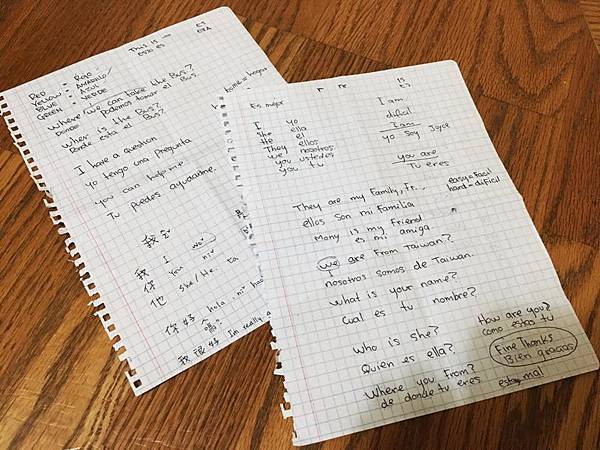 This is
esto es
RED = Rojo
YELLOW = AMARILLO
BLUE = AZUL
GREEN = VERDE
where we can take the Bus?
Donde podemos tomar el Bus.
wher is the Bus?
Donde esta el Bus?
I have a question
yo tengo una pregunta
you can help me
Tu puedes ayudarme.
我
我 I wo
你 you ni
他 She/He. Ta
你好 hola
我很好 I'm really
IS
ES
Es mejor
I yo
She ella
He el
They ellos
we nosotros
you ustedes
you tu
I am
dificil
I am
yo soy Joyce
you are
Tu eres
They are my Family, Fr...
ellos son mi Familia
easy = Facil
hard = diFicil
Mony is my Friend
es mi amiga
we are From Taiwan?
nosotros somos de Taiwan.
what is your name?
Cual es tu nombre?
who is she?
Quien es ella?
How are you?
como estas tu
Fine Thanks
Bien gracias
Where you From?
de donde tu eres
mal